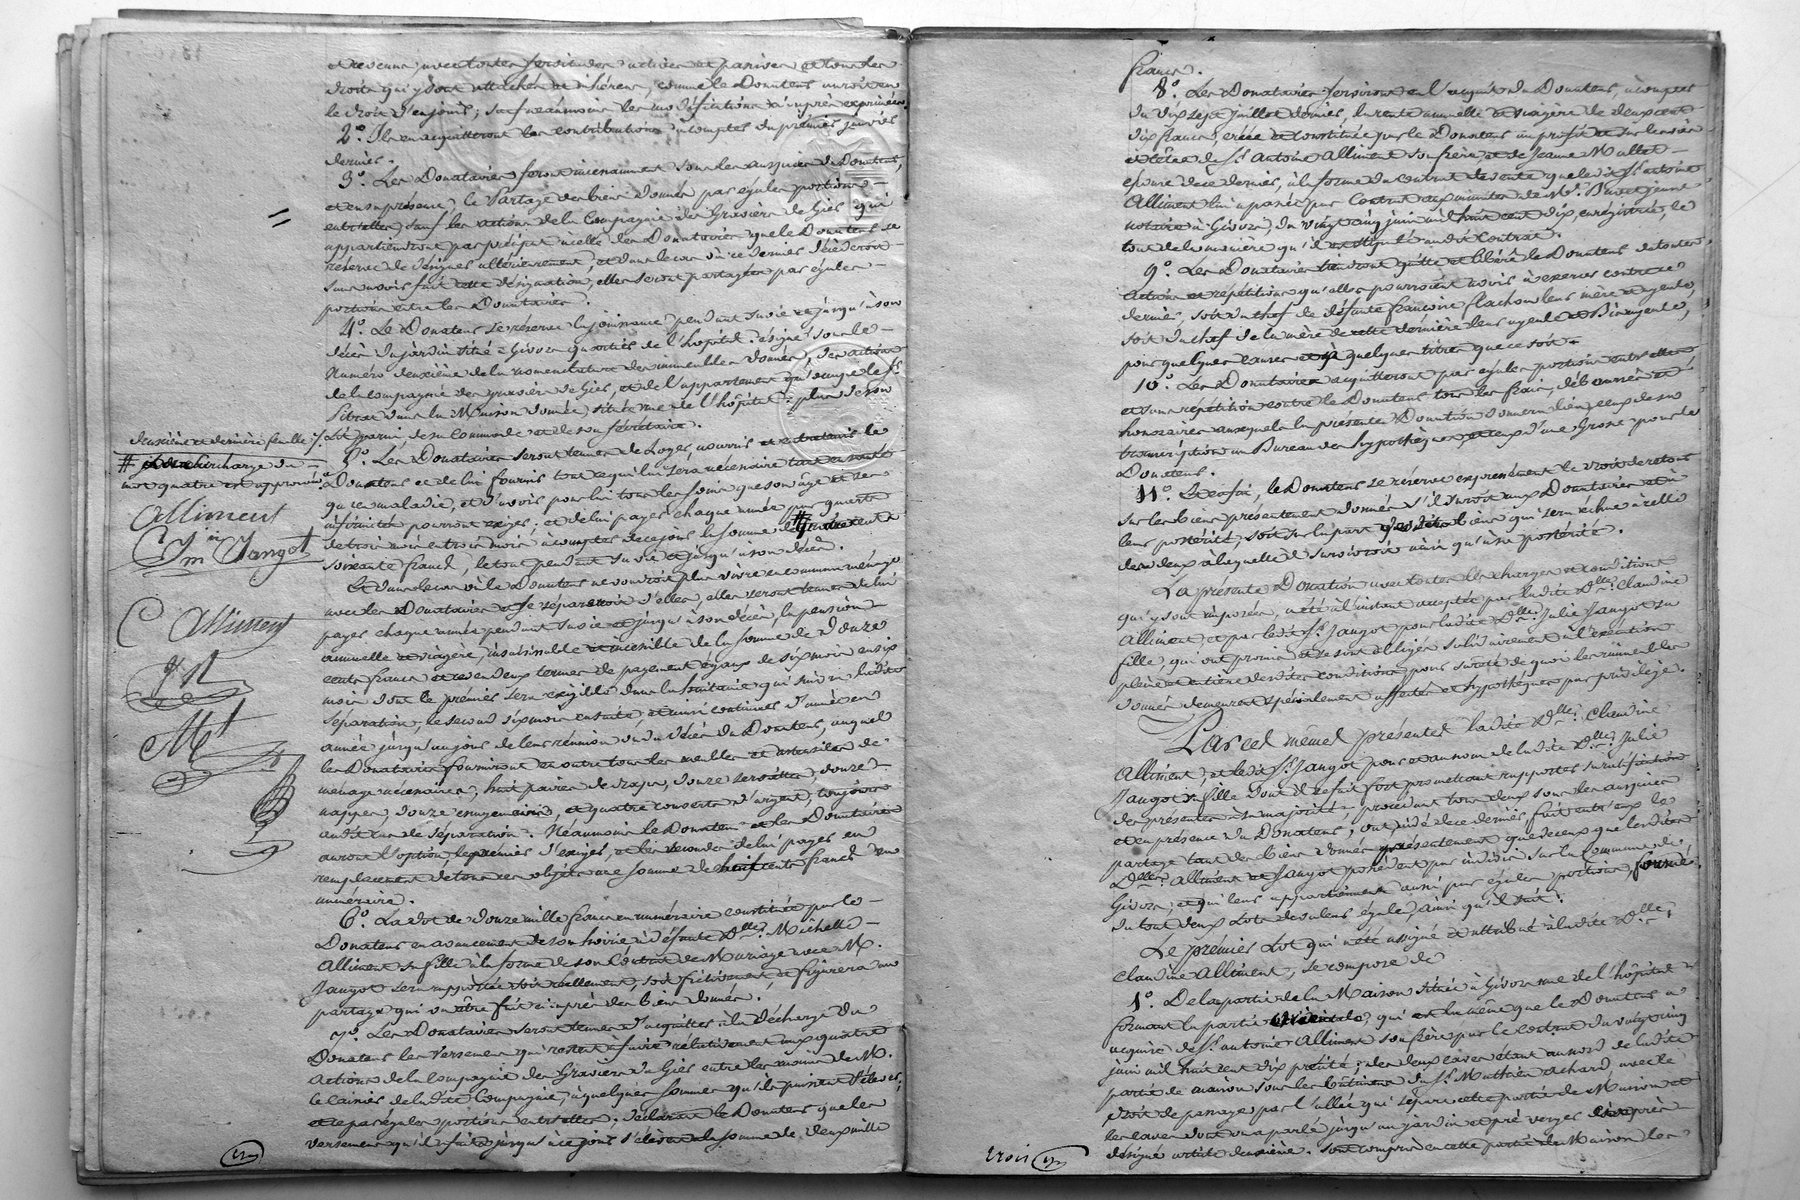 et revenus, avec toutes servitudes actives et passives et tous les
droits qui y sont attachés et inhérens, comme le Donateur auroit eu
le droit d'en jouir, sauf néanmoins les modifications ci-après exprimées
2.° Ils en acquitteront les contributions à compter du premier janvier
dernier.
3.° Les Donataires feront incessament sous les auspices du Donateur,
et en sa présence, le Partage des biens donnés par égales portions
entr'elles, sauf les actions de la Compagnie des Graviers de Gier qui
appartiendront par préciput à celle des Donataires que le Donateur se
réserve de désigner ultérieurement, et dans le cas où ce dernier décèderoit
sans avoir fait cette désignation, elles seront partagées par égales
portions entre les Donataires.
4.° Le Donateur se réserve la jouissance pendant sa vie et jusqu'à son
décès du jardin situé à Givors quartier de l'hôpital, désigné sous le
numéro deuxième de la nomenclature des immeubles donnés, des actions
de la compagnie des graviers de Gier, et de l'appartement qu'occupe le S.r
Pitrat dans la Maison donnée, située rue de l'hôpital; plus de son
Lit garni, de sa Commode et de son Secrétaire.
5.° Les Donataires seront tenues de loger, nourrir et entretenir le
Donateur et de lui fournir tout ce qui lui sera nécessaire tant en santé
qu'en maladie, et d'avoir pour lui tous les soins que son âge et ses
infirmités pourront exiger; et de lui payer chaque année par quart
de trois mois en trois mois à compter de ce jour la somme de
soixante francs, le tout pendant sa vie et jusqu'à son décès.
Et dans le cas où le Donateur ne voudroit plus vivre en commun ménage
avec les Donataires et se sépareroit d'elles, elles seront tenues de lui
payer chaque année pendant sa vie et jusqu'à son décès, la pension
annuelle et viagère, insaisissable et incessible de la somme de douze
cents francs et ce en deux termes de payement égaux de six mois en six
mois dont le premier sera exigible dans la huitaine qui suivra ladite
séparation, le second six mois ensuite, et ainsi continuer d'année en
année jusqu'au jour de leur réunion ou du décès du Donateur, auquel
les Donataires fourniront en outre tous les meubles et ustensiles de
ménage nécessaires, huit paires de draps, douze serviettes, douze
nappes, douze essuyemains, et quatre couverts d'argent, toujours
audit cas de séparation. Néanmoins le Donateur et les Donataires
auront l'option, le premier d'exiger, et les secondes de lui payer en
remplacement de tous ces objets une somme de huit cents francs en
numéraire.
6.° La dot de douze mille francs en numéraire constituée par le
Donateur en avancement de son hoirie à défunte D.lle Michelle
Alliment sa fille à la forme de son Contrat de Mariage avec M.
Jangot sera rapportée soit réellement, soit fictivement, et figurera au
partage qui va être fait ci après des biens donnés.
7.° Les Donataires seront tenues d'acquitter à la décharge du
Donateur les versemens qui restent à faire relativement aux quatre
actions de la compagnie des Graviers du Gier entre les mains de M.
le Caissier de ladite Compagnie, à quelques sommes qu'ils puissent s'élever;
et ce par égales portions entr'elles; déclarant le Donateur que les
versemens qu'il a faits jusqu'à ce jour s'élèvent à la somme de deux mille
deuxième et dernière feuille
# et la surcharge du
mot quatre est approuvée
Alliment
Jangot
C Alliment
francs.
8.° Les Donataires serviront en l'acquit du Donateur, à compter
du dix sept juillet dernier, la rente annuelle et viagère de deux cent
dix francs, créée et constituée par le Donateur au profit et sur les vies
et têtes de S.r Antoine Alliment son frère, et de Jeanne Mallet
épouse de ce dernier, à la forme du contrat de vente que ledit S.r antoine
Alliment lui a passé par Contrat aux minutes de M.e jeune
notaire à Givors, du vingt cinq juin mil huit cent dix, enregistré, le
tout de la manière qu'il est stipulé audit Contrat.
9.° Les Donataires tiendront quitte et libéré le Donateur de toutes
actions et répétitions qu'elles pourroient avoir à exercer contre ce
dernier, soit du chef de défunte françoise flachon leur mère et ayeule,
soit du chef de la mère de cette dernière leur ayeule et Bisayeule,
pour quelques causes et à quelques titres que ce soit.
10.° Les Donataires acquitteront par égales portions entr'elles
et sans répétition contre le Donateur tous les frais, déboursés et
honoraires auxquels la présente Donation donnera lieu, ceux de sa
transcription au Bureau des hypothèques, et ceux d'une Grosse pour le
Donateur.
11.° Enfin, le Donateur se réserve expressément le droit de retour
sur les biens présentement donnés s'il survit aux Donataires et à
leur postérité, soit sur la part desdits biens qui sera échue à celle
des deux à laquelle il survivroit ainsi qu'à sa postérité.
La présente Donation avec toutes les charges et conditions
qui y sont imposées, a été à l'instant acceptée par ladite D.lle Claudine
Alliment et par ledit S.r Jangot pour ladite D.lle Julie Jangot sa
fille, qui ont promis et se sont obligés solidairement à l'exécution
pleine et entière desdites conditions pour sureté de quoi les immeubles
donnés demeurent spécialement affectés et hypothéqués par privilège.
Par ces mêmes présentes ladite D.lle Claudine
Alliment, et ledit S.r Jangot pour et au nom de ladite D.lle Julie
Jangot sa fille dont il se fait fort promettant rapporter sa ratification
des présentes à sa majorité, procédant tous deux sous les auspices
et en présence du Donateur, ont, aidés de ce dernier, fait entr'eux le
partage tant des biens donnés présentement que de ceux que lesdites
D.lles Alliment et Jangot possèdent par indivis sur la Commune de
Givors, et qui leur appartiennent aussi par égales portions, formé
du tout deux Lots de valeur égale, ainsi qu'il suit:
Le premier Lot qui a été assigné et attribué à ladite D.lle
Claudine Alliment, se compose de
1.° De la partie de la Maison située à Givors rue de l'hôpital
formant la partie occidentale, qui est la même que le Donateur a
acquise de S.r antoine Alliment son frère par le contrat du vingt cinq
juin mil huit cent dix précité; des deux caves étant au nord de ladite
partie de maison sous les bâtimens du S.r Mathieu Achard, avec le
droit de passage par l'allée qui sépare cette partie de Maison et
les caves dont on a parlé jusqu'au jardin et pré verger ci après
désigné article deuxième. Sont compris en cette partie de Maison les
trois